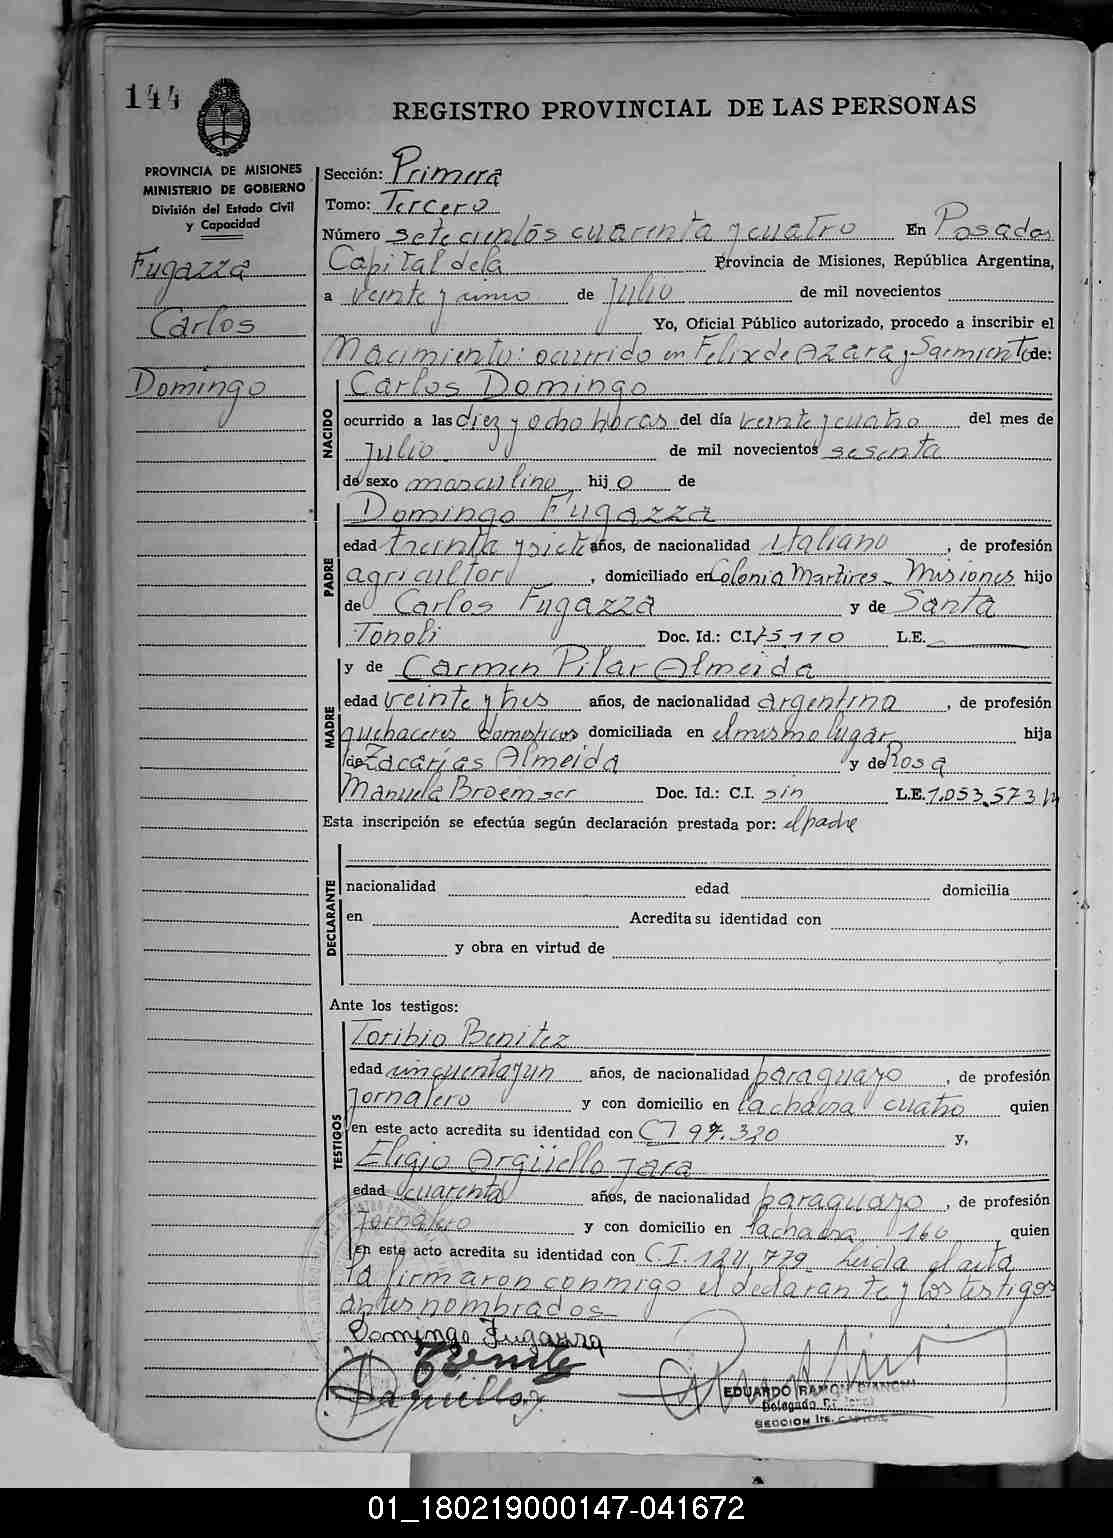 144
REGISTRO PROVINCIAL DE LAS PERSONAS
PROVINCIA DE MISIONES
MINISTERIO DE GOBIERNO
División del Estado Civil
y Capacidad
Fugazza
Carlos
Domingo
Sección: Primera
Tomo: Tercero
Número setecientos cuarenta y cuatro En Posadas
Capital de la Provincia de Misiones, República Argentina,
a veinte y uno de Julio de mil novecientos
Yo, Oficial Público autorizado, procedo a inscribir el
Nacimiento: ocurrido en Felix de Azara y Sarmiento de:
NACIDO
Carlos Domingo
ocurrido a las diez y ocho horas del día veinte y cuatro del mes de
Julio de mil novecientos sesenta
de sexo masculino hijo de
PADRE
Domingo Fugazza
edad treinta y siete años, de nacionalidad italiano, de profesión
agricultor, domiciliado en Colonia Martires - Misiones hijo
de Carlos Fugazza y de Santa
Tonoli Doc. Id.: C.I. 75.110 L.E.
MADRE
y de Carmen Pilar Almeida
edad veinte y tres años, de nacionalidad argentina, de profesión
quehaceres domesticos domiciliada en el mismo lugar hija
de Zacarías Almeida y de Rosa
Manuela Broemser Doc. Id.: C.I. sin L.E. 1.053.573
Esta inscripción se efectúa según declaración prestada por: el padre
DECLARANTE
nacionalidad edad domicilia
en Acredita su identidad con
y obra en virtud de
Ante los testigos:
TESTIGOS
Toribio Benitez
edad cincuenta y un años, de nacionalidad paraguayo, de profesión
Jornalero y con domicilio en la chacra cuatro quien
en este acto acredita su identidad con CI 97.320 y,
Eligio Argüello Jara
edad cuarenta años, de nacionalidad paraguayo, de profesión
Jornalero y con domicilio en la chacra 160 quien
en este acto acredita su identidad con C.I. 124.779 Leida el acta
la firmaron conmigo el declarante y los testigos
antes nombrados
Domingo Fugazza
T Benitez
EDUARDO RAMON BIANCHI
Delegado
SECCION 1ra. CAPITAL
01_180219000147-041672